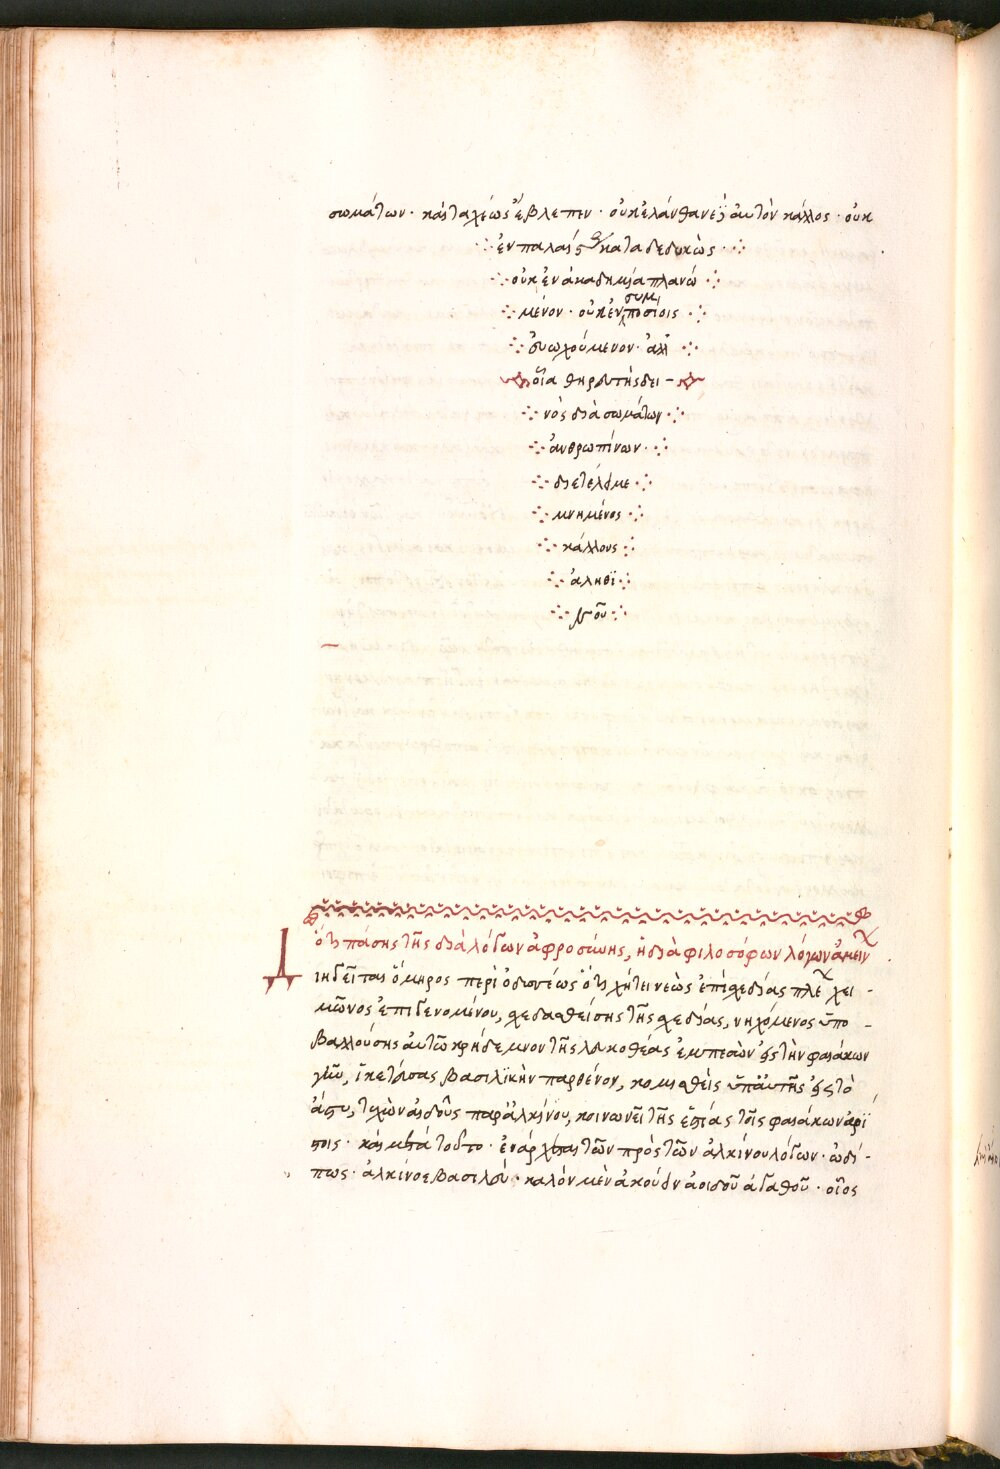 σωμάτων · καὶ ταχέως ἔβλεπεν · οὐκ ἐλάνθανει αὐτὸν κάλλος · οὐκ
ἐν παλαίς καταδεδυκὼς
οὐκ ἐν ἀκαδημία πλανώ
μένον · οὐκ ἐν συμποσίοις
εὐωχούμενον · ἀλλ
οἷα θηρευτὴς δει -
νὸς διὰ σωμάτων
ἀνθρωπίνων ·
διετέλει με
μνημένος
κάλλους
ἀληθι
νοῦ
ὅτι πάσης τῆς διὰ λόγων ἀφροσύνης, ἡ διὰ φιλοσόφων λόγων ἀμείν
Διηγεῖται ὅμηρος περὶ ὀδυσσέως ὅτι χήτει νεὼς ἐπὶ σχεδίας πλε χει -
μῶνος ἐπιγενομένου, σκεδασθείσης τῆς σχεδίας, νηχόμενος ὑπο -
βαλλούσης αὐτῶ κρήδεμνον τῆς λευκοθέας ἐμπεσὼν εἰς τὴν φαιάκων
γῆν, ἱκετεύσας βασιλικὴν παρθένον, κομισθεὶς ὑπ' αὐτῆς εἰς τὸ
ἄστυ, τυχὼν αἰδοῦς παρ' ἀλκίνου, κοινωνεῖ τῆς ἑστίας τοῖς φαιάκων ἀρί
στοις · καὶ μετὰ τοῦτο · ἐνάρχεται τῶν πρὸς τῶν ἀλκίνου λόγων · ὡδί -
πως · ἀλκίνοε βασιλεῦ · καλόν μὲν ἀκούειν ἀοιδοῦ ἀγαθοῦ · οἷος